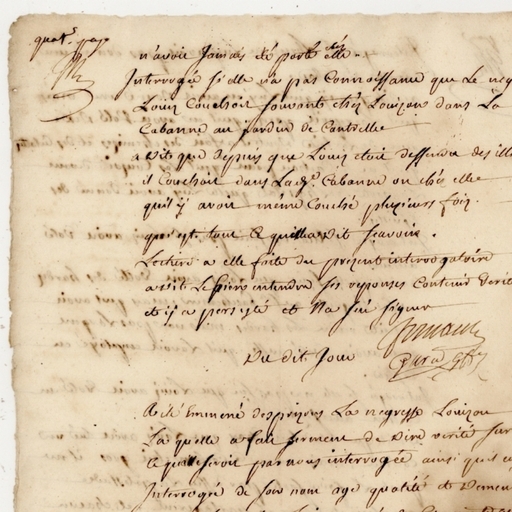 quat.e page
n'avoir Jamais été porté chés elle.
Interrogé si elle n'a pas Connoissance que Le neg
Louis Couchoit souvent chés Louison dans La
Cabanne au jardin de Cantrelle
a dit que depuis que Louis étoit dessendu des ill
il Couchoit dans Lad.e Cabanne ou chés elle
qu'il y avoit même Couché plusieurs fois.
qui est tout Ce qu'elle a dit sçavoir.
Lecture a elle faite du présent interrogatoire
a dit Le bien entendre ses reponses Contenir verité
et y a persisté et N'a sçu signer
Du dit Jour
A été Emmené des prisons La negresse Louison
La quelle a fait serment de Dire verité sur
Ce quelle seroit par nous interrogée ainsi qu'il
Interrogée de son nom age qualité et Demeu